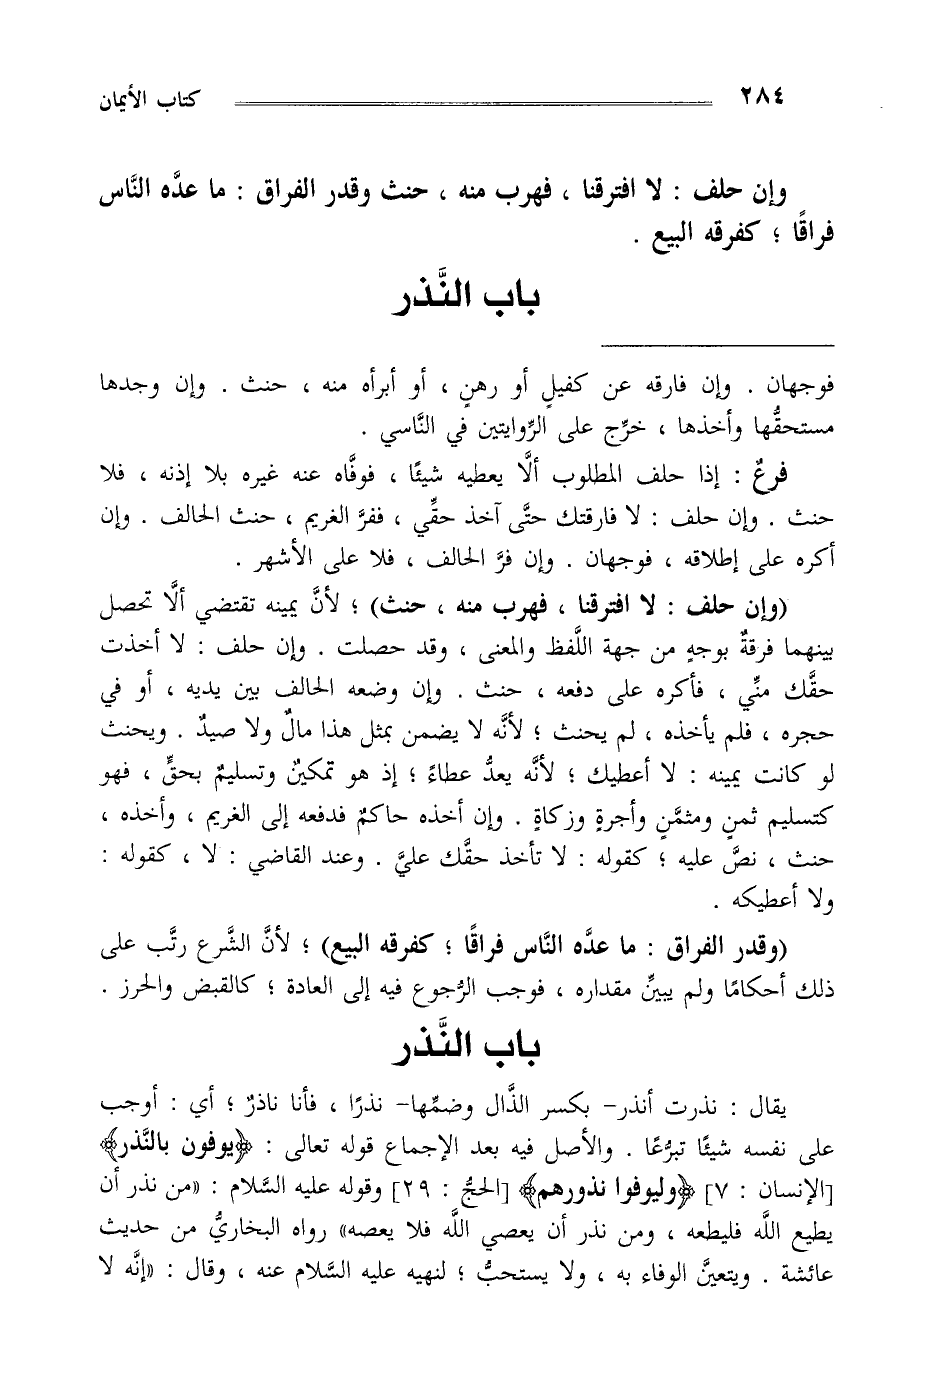 ٢٨٤ كتاب الأيمان
وإن حلف : لا افترقنا ، فهرب منه ، حنث وقدر الفراق : ما عدَّه النَّاس
فراقًا ؛ كفرقه البيع .
باب النَّذر
فوجهان . وإن فارقه عن كفيلٍ أو رهنٍ ، أو أبرأه منه ، حنث . وإن وجدها
مستحقُّها وأخذها ، خرِّج على الرِّوايتين في النَّاسي .
فرعٌ : إذا حلف المطلوب ألَّا يعطيه شيئًا ، فوفَّاه عنه غيره بلا إذنه ، فلا
حنث . وإن حلف : لا فارقتك حتَّى آخذ حقِّي ، ففرَّ الغريم ، حنث الحالف . وإن
أكره على إطلاقه ، فوجهان . وإن فرَّ الحالف ، فلا على الأشهر .
(وإن حلف : لا افترقنا ، فهرب منه ، حنث) ؛ لأنَّ يمينه تقتضي ألَّا تحصل
بينهما فرقةٌ بوجهٍ من جهة اللَّفظ والمعنى ، وقد حصلت . وإن حلف : لا أخذت
حقَّك منِّي ، فأكره على دفعه ، حنث . وإن وضعه الحالف بين يديه ، أو في
حجره ، فلم يأخذه ، لم يحنث ؛ لأنَّه لا يضمن بمثل هذا مالٌ ولا صيدٌ . ويحنث
لو كانت يمينه : لا أعطيك ؛ لأنَّه يعدُّ عطاءً ؛ إذ هو تمكينٌ وتسليمٌ بحقٍّ ، فهو
كتسليم ثمنٍ ومثمَّنٍ وأجرةٍ وزكاةٍ . وإن أخذه حاكمٌ فدفعه إلى الغريم ، وأخذه ،
حنث ، نصَّ عليه ؛ كقوله : لا تأخذ حقَّك عليَّ . وعند القاضي : لا ، كقوله :
ولا أعطيكه .
(وقدر الفراق : ما عدَّه النَّاس فراقًا ؛ كفرقه البيع) ؛ لأنَّ الشَّرع رتَّب على
ذلك أحكامًا ولم يبيِّن مقداره ، فوجب الرُّجوع فيه إلى العادة ؛ كالقبض والحرز .
باب النَّذر
يقال : نذرت أنذر- بكسر الذَّال وضمِّها- نذرًا ، فأنا ناذرٌ ؛ أي : أوجب
على نفسه شيئًا تبرُّعًا . والأصل فيه بعد الإجماع قوله تعالى : ﴿يوفون بالنَّذر﴾
[الإنسان : ٧] ﴿وليوفوا نذورهم﴾ [الحجُّ : ٢٩] وقوله عليه السَّلام : «من نذر أن
يطيع اللَّه فليطعه ، ومن نذر أن يعصي اللَّه فلا يعصه» رواه البخاريُّ من حديث
عائشة . ويتعينَّ الوفاء به ، ولا يستحبُّ ؛ لنهيه عليه السَّلام عنه ، وقال : «إنَّه لا